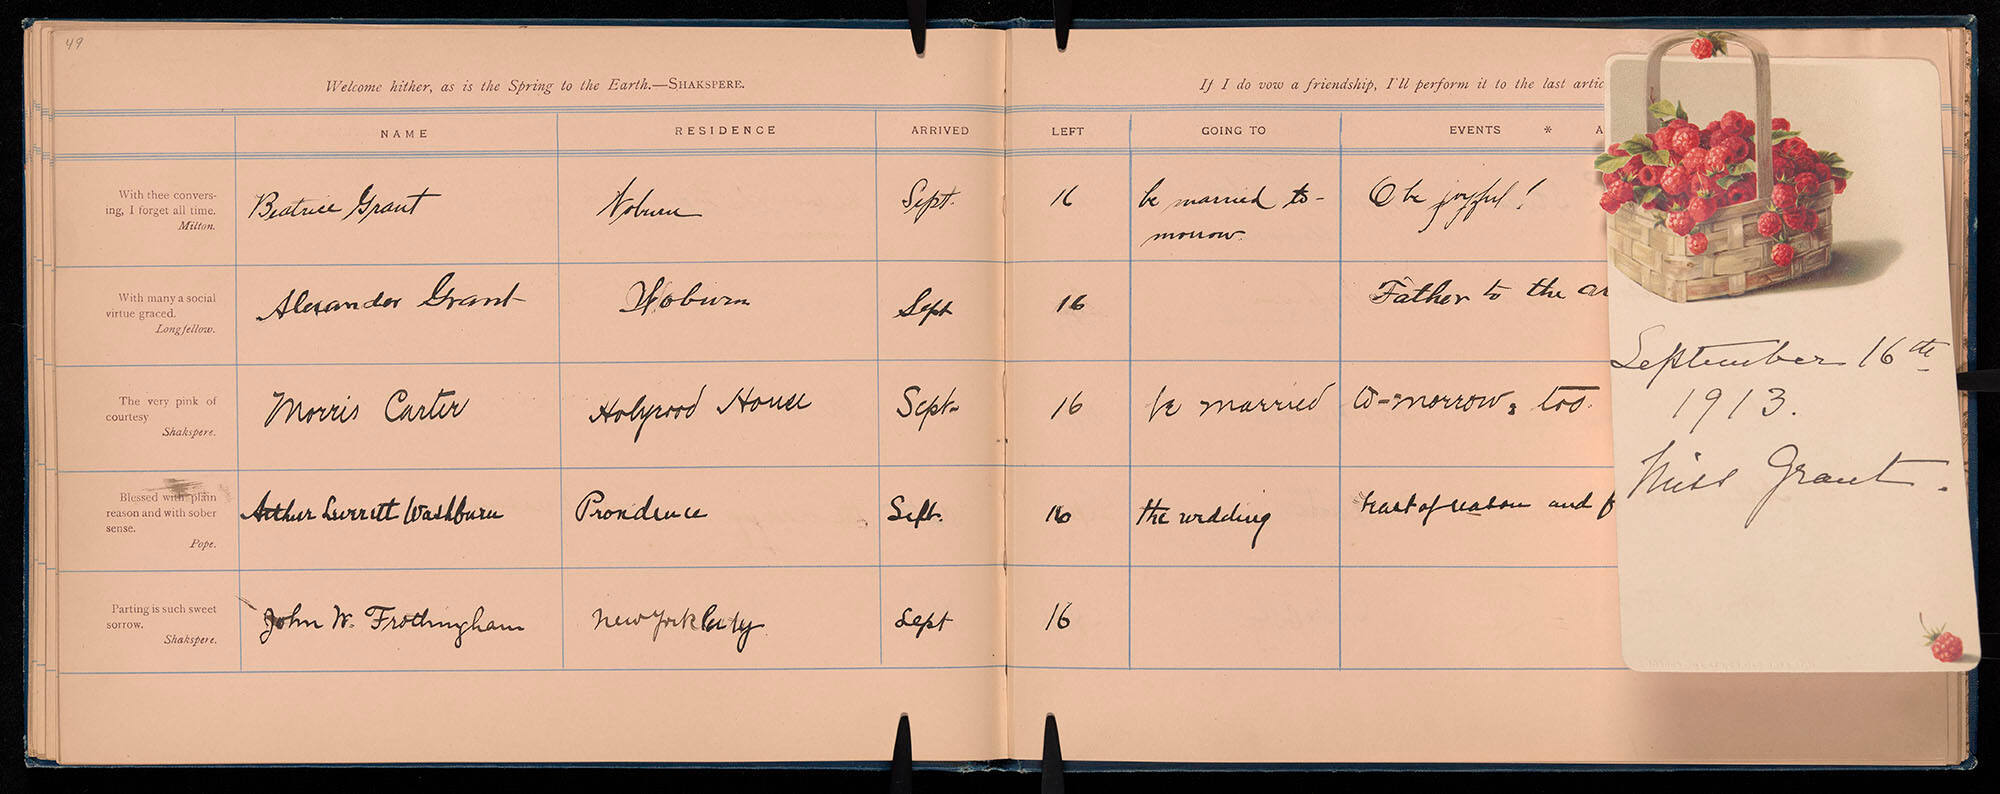 49
Welcome hither, as is the Spring to the Earth.—SHAKSPERE.
If I do vow a friendship, I'll perform it to the last artic
NAME RESIDENCE ARRIVED LEFT GOING TO EVENTS * A
With thee convers-
ing, I forget all time.
Milton.
Beatrice Grant Woburn Sept. 16 be married to-
morrow. O be joyful!
With many a social
virtue graced.
Longfellow.
Alexander Grant Woburn Sept 16 Father to the
The very pink of
courtesy
Shakspere.
Morris Carter Holyrood House Sept. 16 be married to-morrow, too.
Blessed with plain
reason and with sober
sense.
Pope.
Arthur Leverett Washburn Providence Sept. 16 the wedding feast of reason and f
Parting is such sweet
sorrow.
Shakspere.
John W. Frothingham New York City Sept 16
September 16th
1913.
Miss Grant.